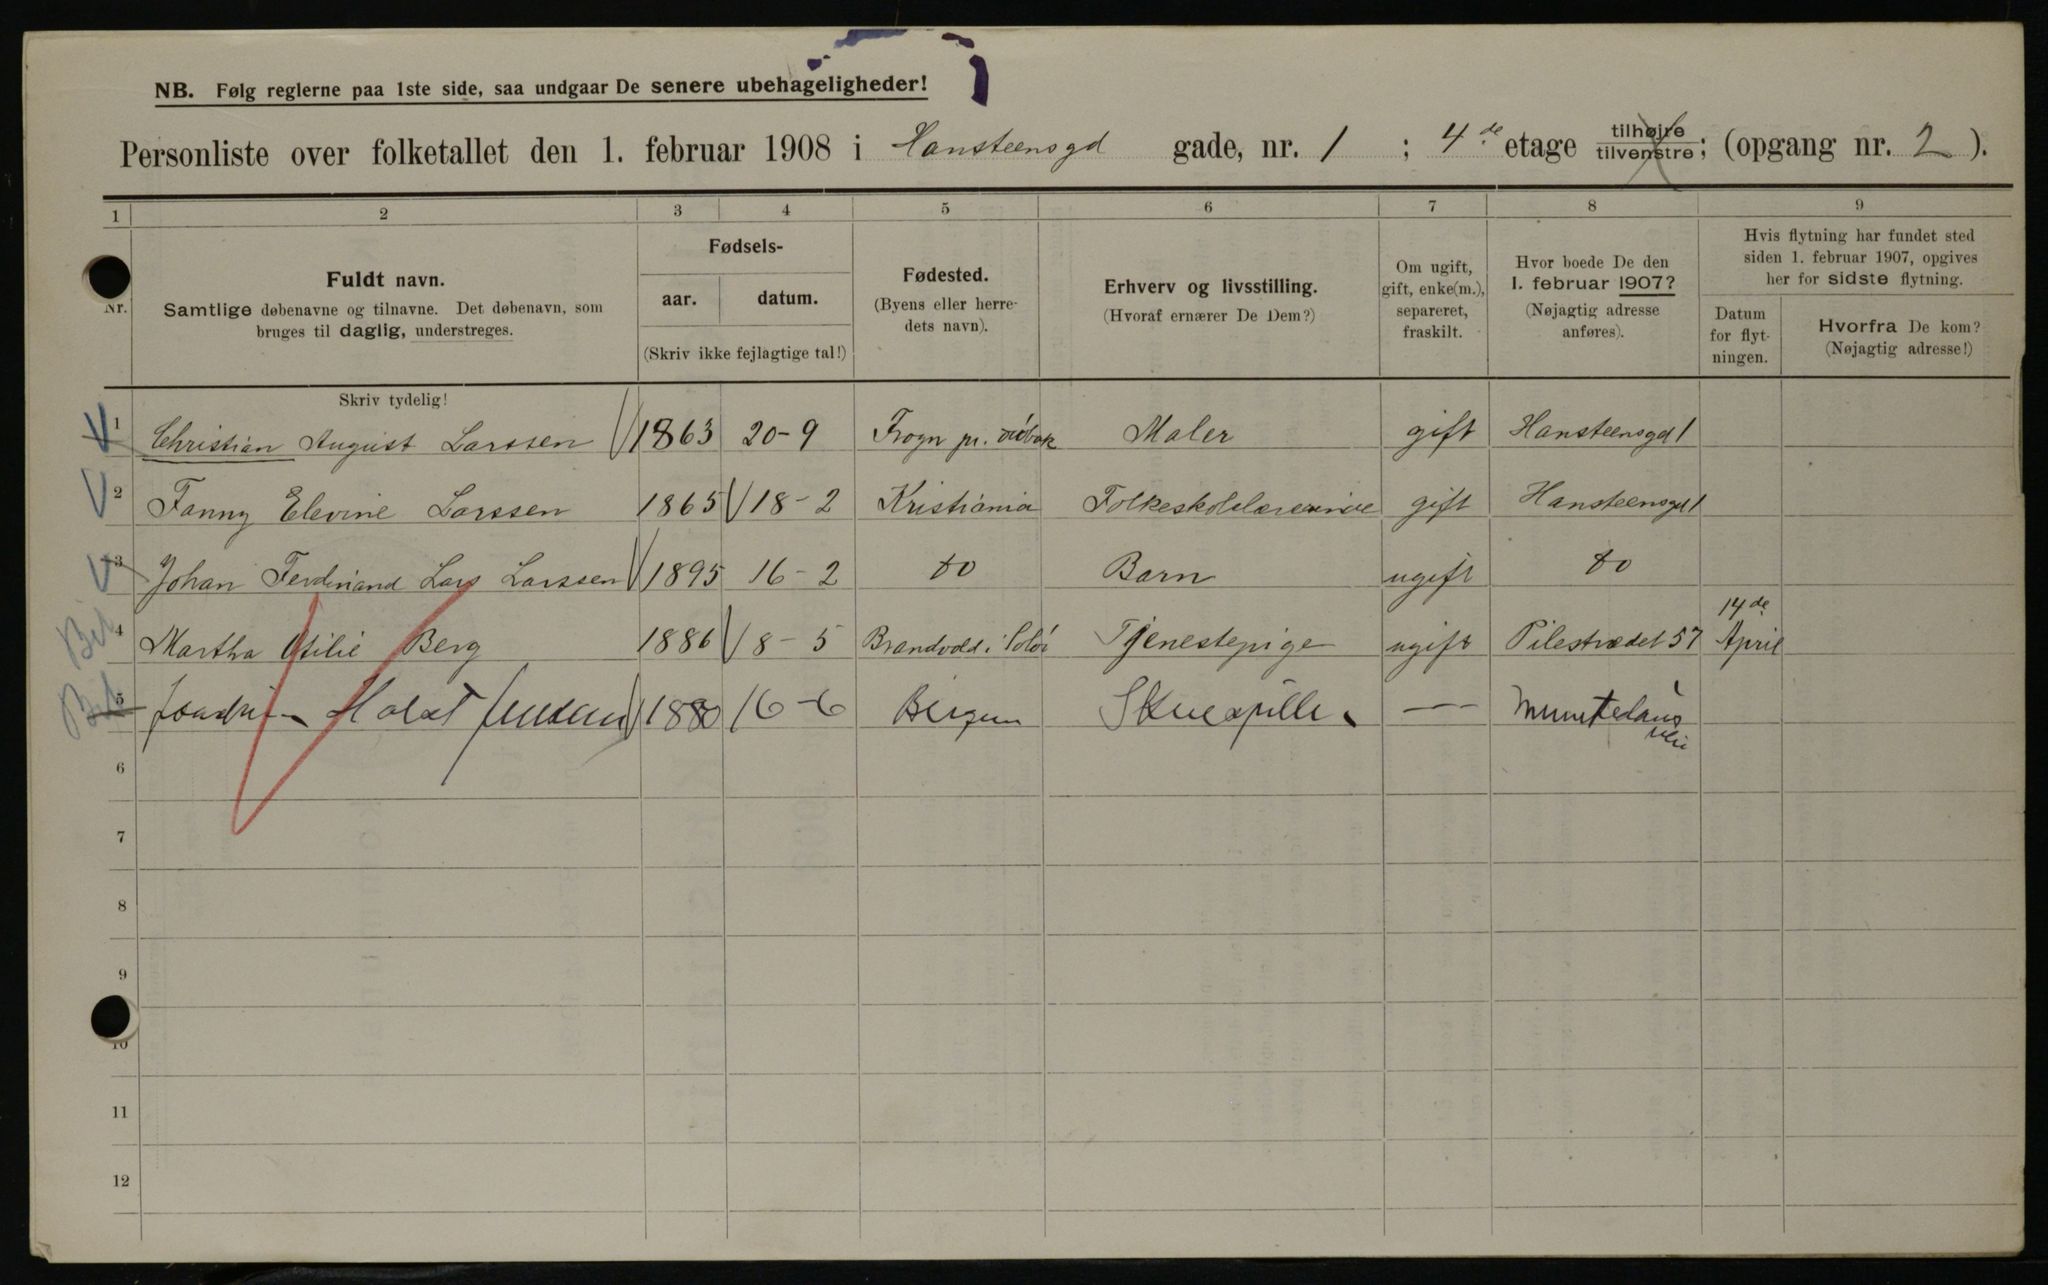 NB. Følg reglerne paa 1ste side, saa undgaar De senere ubehageligheder!
Personliste over folketallet den 1. februar 1908 i Hansteensgd gade, nr. 1 ; 4de etage tilhøjre tilvenstre; (opgang nr. 2 ).
1 2 3 4 5 6 7 8 9
Nr.
Fuldt navn.
Samtlige døbenavne og tilnavne. Det døbenavn, som
bruges til daglig, understreges.
Fødsels-
aar. datum.
(Skriv ikke fejlagtige tal!)
Fødested.
(Byens eller herre-
dets navn).
Erhverv og livsstilling.
(Hvoraf ernærer De Dem?)
Om ugift,
gift, enke(m.),
separeret,
fraskilt.
Hvor boede De den
1. februar 1907?
(Nøjagtig adresse
anføres).
Hvis flytning har fundet sted
siden 1. februar 1907, opgives
her for sidste flytning.
Datum
for flyt-
ningen.
Hvorfra De kom?
(Nøjagtig adresse!)
Skriv tydelig!
1 Christian August Larssen 1863 20-9 Frogn pr. Maler gift Hansteensgd 1
2 Fanny Elevine Larssen 1865 18-2 Kristiania Folkeskolelærerinde gift Hansteensgd 1
3 Johan Ferdinand Lars Larssen 1895 16-2 do Barn ugift do
14de
Bet 4 Martha Otilie Berg 1886 8-5 Brandvold i Solør Tjenestepige ugift Pilestrædet 57 April
Bet 5 Holst Jensen 1880 16-6 Bergen Skuespiller —
6
7
8
9
10
11
12